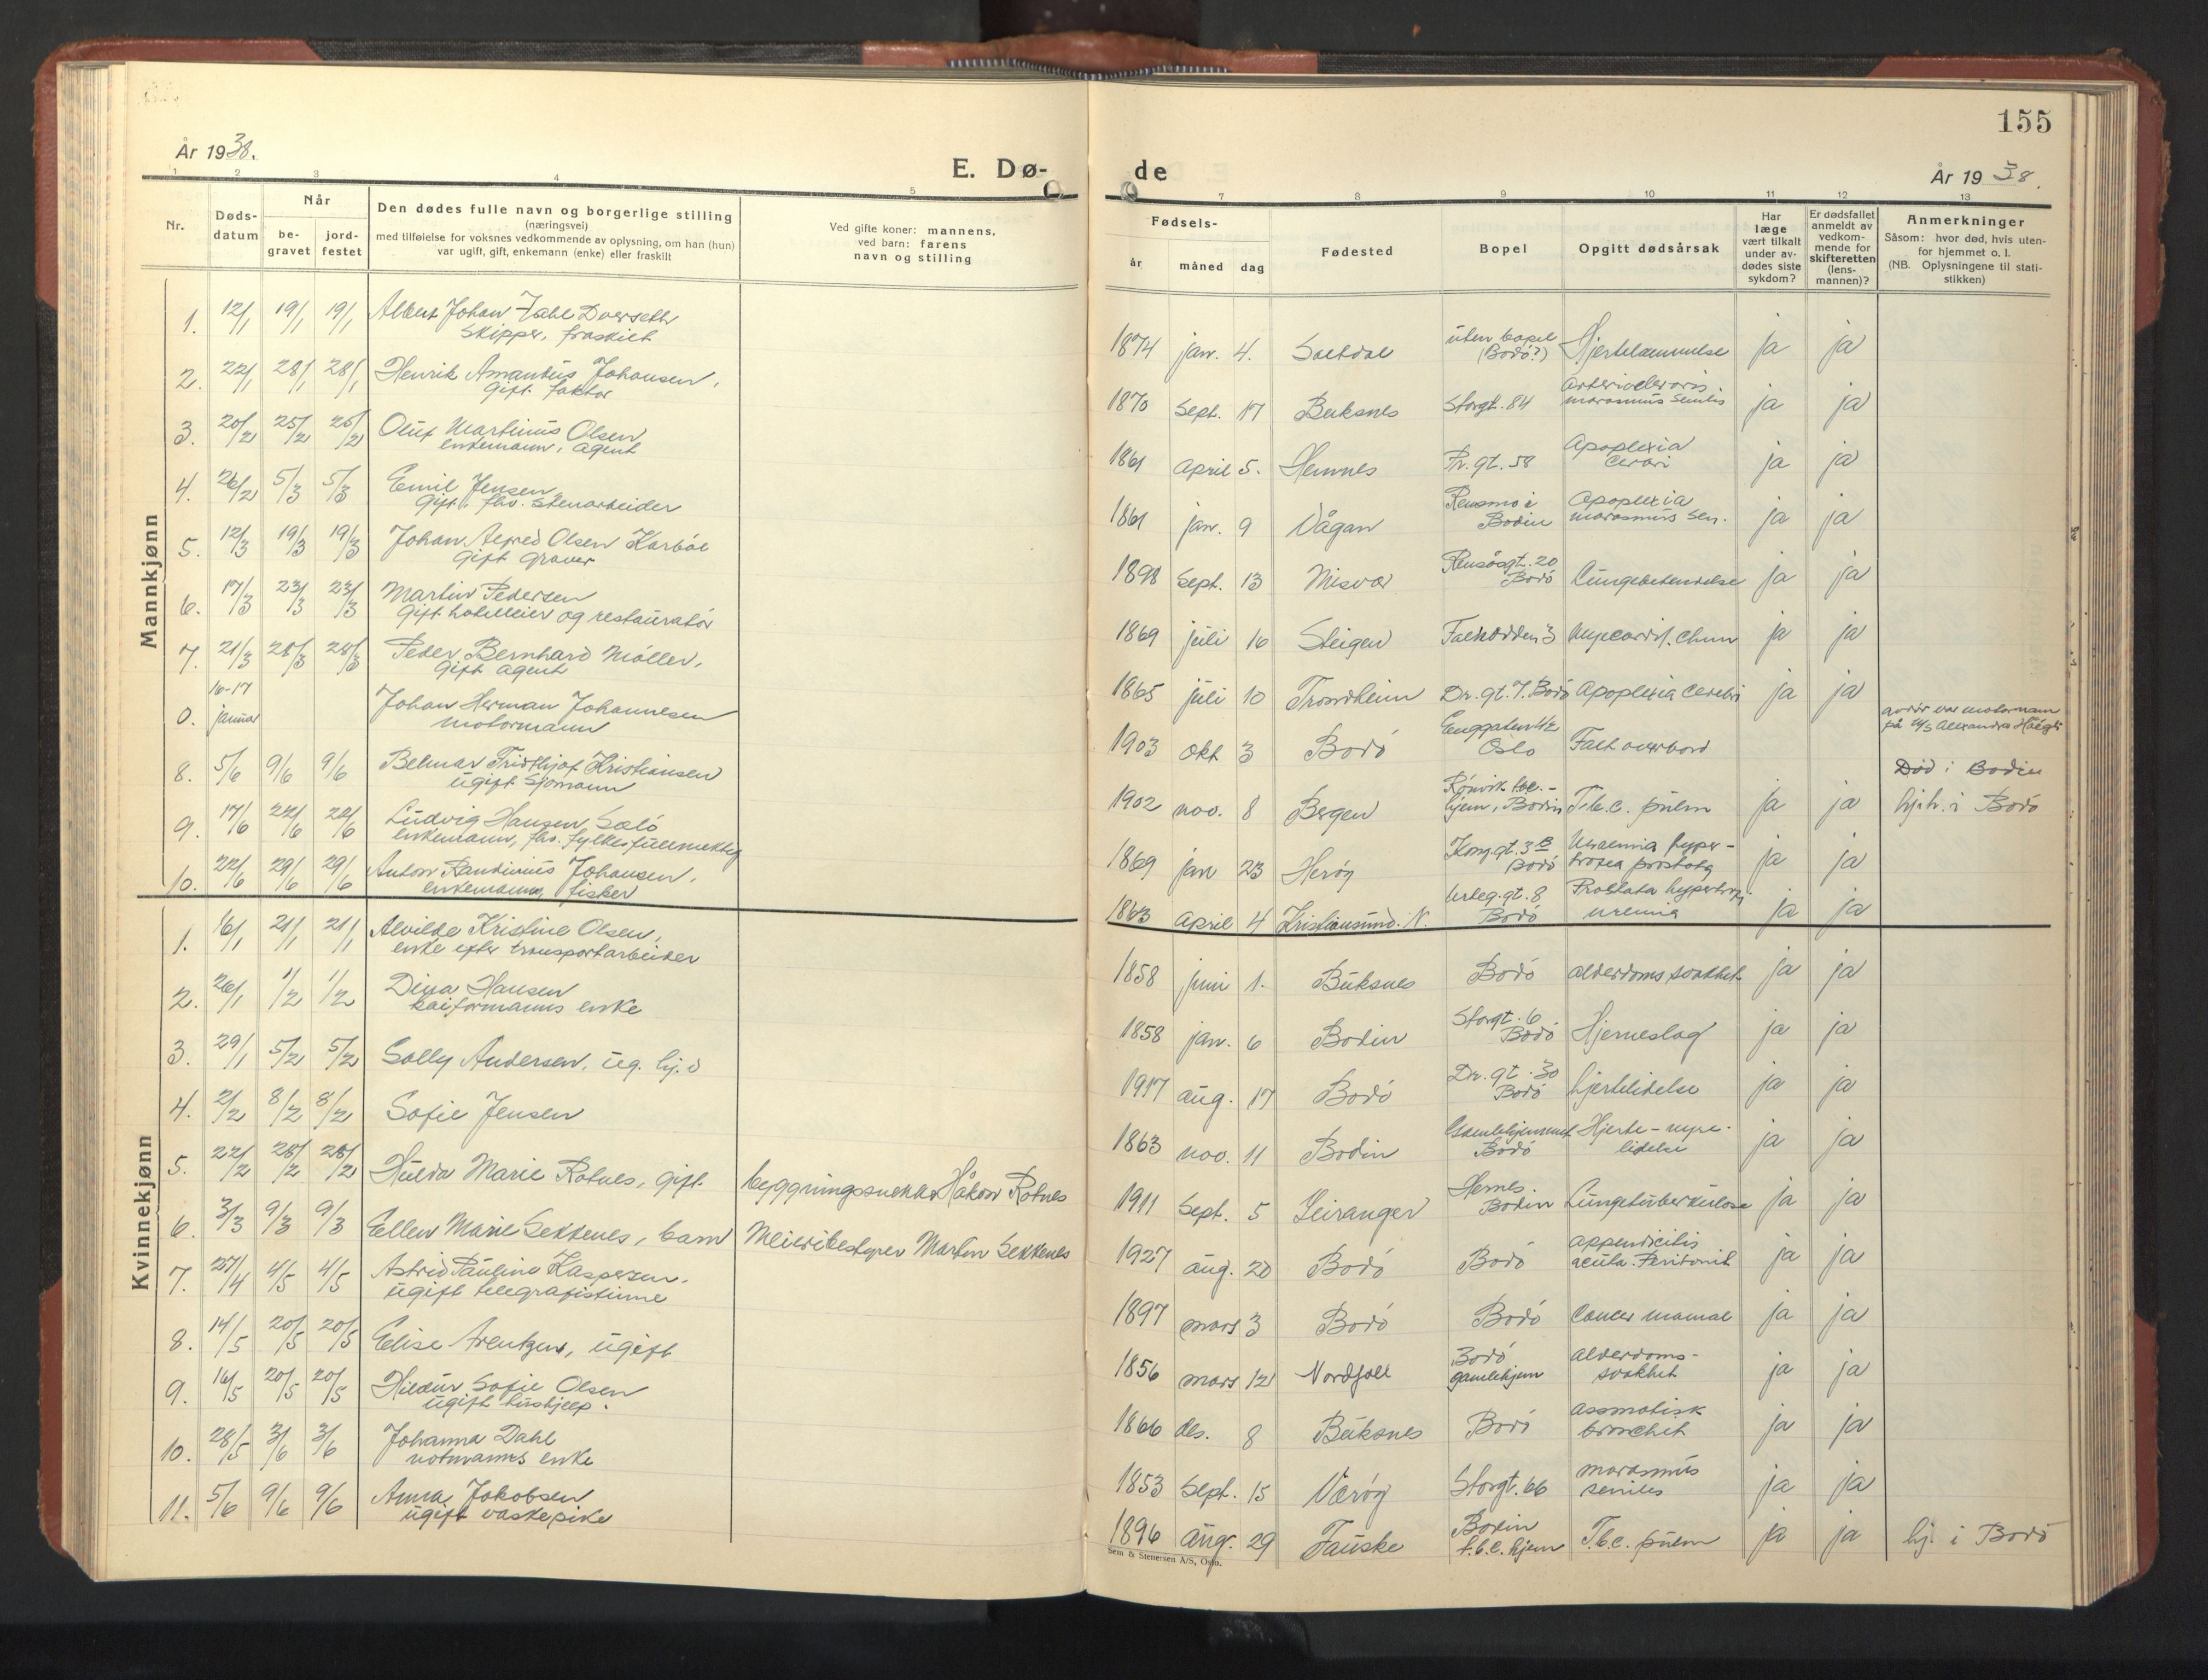 155
År 1938.
E. Dø-
de
År 1938.
1 2 3 4 5
7 8 9 10 11 12 13
Nr.
Døds-
datum
Når
be-
gravet
jord-
festet
Den dødes fulle navn og borgerlige stilling
(næringsvei)
med tilføielse for voksnes vedkommende av oplysning, om han (hun)
var ugift, gift, enkemann (enke) eller fraskilt
Ved gifte koner: mannens,
ved barn: farens
navn og stilling
Fødsels-
år måned dag
Fødested
Bopel
Opgitt dødsårsak
Har
læge
vært tilkalt
under av-
dødes siste
sykdom?
Er dødsfallet
anmeldt av
vedkom-
mende for
skifteretten
(lens-
mannen)?
Anmerkninger
Såsom: hvor død, hvis uten-
for hjemmet o. l.
(NB. Oplysningene til stati-
stikken)
Mannkjønn
1. 12/1 19/1 19/1 Albert Johan Zahl Dverseth
skipper, fraskilt
1874 jan. 4. Saltdal uten bopel
(Bodö?) Hjertelammelse ja ja
2. 22/1 28/1 28/1 Henrik Amandus Johansen,
gift faktor
1870 Sept. 17 Buksnes Storgt. 84
marasmus senilis ja ja
3. 20/2 25/2 25/2 Oluf Martinus Olsen
enkemann, agent
1861 april 5. Hemnes Pr. gt. 58 Apoplexia
ja ja
4. 26/2 5/3 5/3 Emil Jensen
gift, fhv. stenarbeider
1861 jan. 9 Vågan Rensmo i
Bodin Apoplexia
marasmus sen. ja ja
5. 12/3 19/3 19/3 Johan Alfred Olsen Karböl
gift graver
1898 Sept. 13 Misvær Rensåsgt. 20
Bodö Lungebetendelse ja ja
6. 17/3 23/3 23/3 Martin Pedersen
gift hotelleier og restauratör
1869 juli 16 Steigen 3 ja ja
7. 21/3 28/3 28/3 Peder Bernhard Möller,
gift agent
1865 juli 10 Trondheim Dr. gt. 7. Bodö Apoplexia cerebri ja ja
0. 16-17
januar Johan Herman Johannesen
motormann
1903 okt 3 Bodö
Oslo Falt overbord
på M/S Alexandra
8. 5/6 9/6 9/6 Belmar Fridthjof Kristiansen
ugift sjömann
1902 nov. 8 Bergen Rönvik tbc.-
hjem, Bodin T.b.c. pulm ja ja
Död i Bodin
hjh. i Bodö
9. 17/6 22/6 22/6 Ludvig Hansen
enkemann, fhv. fylkesfullmektig
1869 jan 23 Heröy Kong.gt. 3B
Bodö Uræmia hyper-
trofia prostata ja ja
10. 22/6 29/6 29/6 Anton Johansen,
enkemann, fisker
1863 april 4 Kristiansund. N. gt. 8
Bodö Prostata
uremia ja ja
Kvinnekjønn
1. 16/1 21/1 21/1 Alvilde Kristine Olsen,
enke efter transportarbeider
1858 juni 1. Buksnes Bodö alderdomssvakhet ja ja
2. 26/1 1/2 1/2 Dina Hansen
kaiformanns enke
1858 jan. 6 Bodin Storgt. 6
Bodö Hjerneslag ja ja
3. 29/1 5/2 5/2 Solly Andersen, ug. hj. d
1917 aug. 17 Bodö Dr. gt. 30
Bodö hjertelidelse ja ja
4. 2/2 8/2 8/2 Sofie Jensen
1863 nov. 11 Bodin Gamlehjemmet
Bodö Hjerte-nyre-
lidelse ja ja
5. 22/2 28/2 28/2 Hulda Marie Rotnes, gift byggningssnekker Håkon Rotnes
1911 Sept. 5 Leiranger Hernes.
Bodin Lungetuberkulose ja ja
6. 3/3 9/3 9/3 Ellen Marie Sekkenes, barn Meieribestyrer Martin Sekkenes
1927 aug. 20 Bodö Bodö appendicitis
acuta. Peritonit ja ja
7. 27/4 4/5 4/5 Astrid Pauline Kaspersen,
ugift telegrafistinne
1897 mars 3 Bodö Bodö Cancer mamae ja ja
8. 14/5 20/5 20/5 Elise Arentzen, ugift
1856 mars 12 Nordfoll Bodö
gamlehjem alderdoms-
svakhet ja ja
9. 16/5 20/5 20/5 Hildur Sofie Olsen
ugift hushjelp.
1866 des. 8 Buksnes Bodö assmatisk
bronchit ja ja
10. 28/5 3/6 3/6 Johanna Dahl
notmanns enke
1853 Sept. 15 Væröy Storgt. 66 marasmus
seniles ja ja
11. 5/6 9/6 9/6 Anna Jakobsen
ugift vaskepike
1896 aug. 29 Fauske Bodin
t.b.c. hjem T.b.c. pulm ja ja hj. i Bodö
Sem & Stenersen A/S, Oslo.